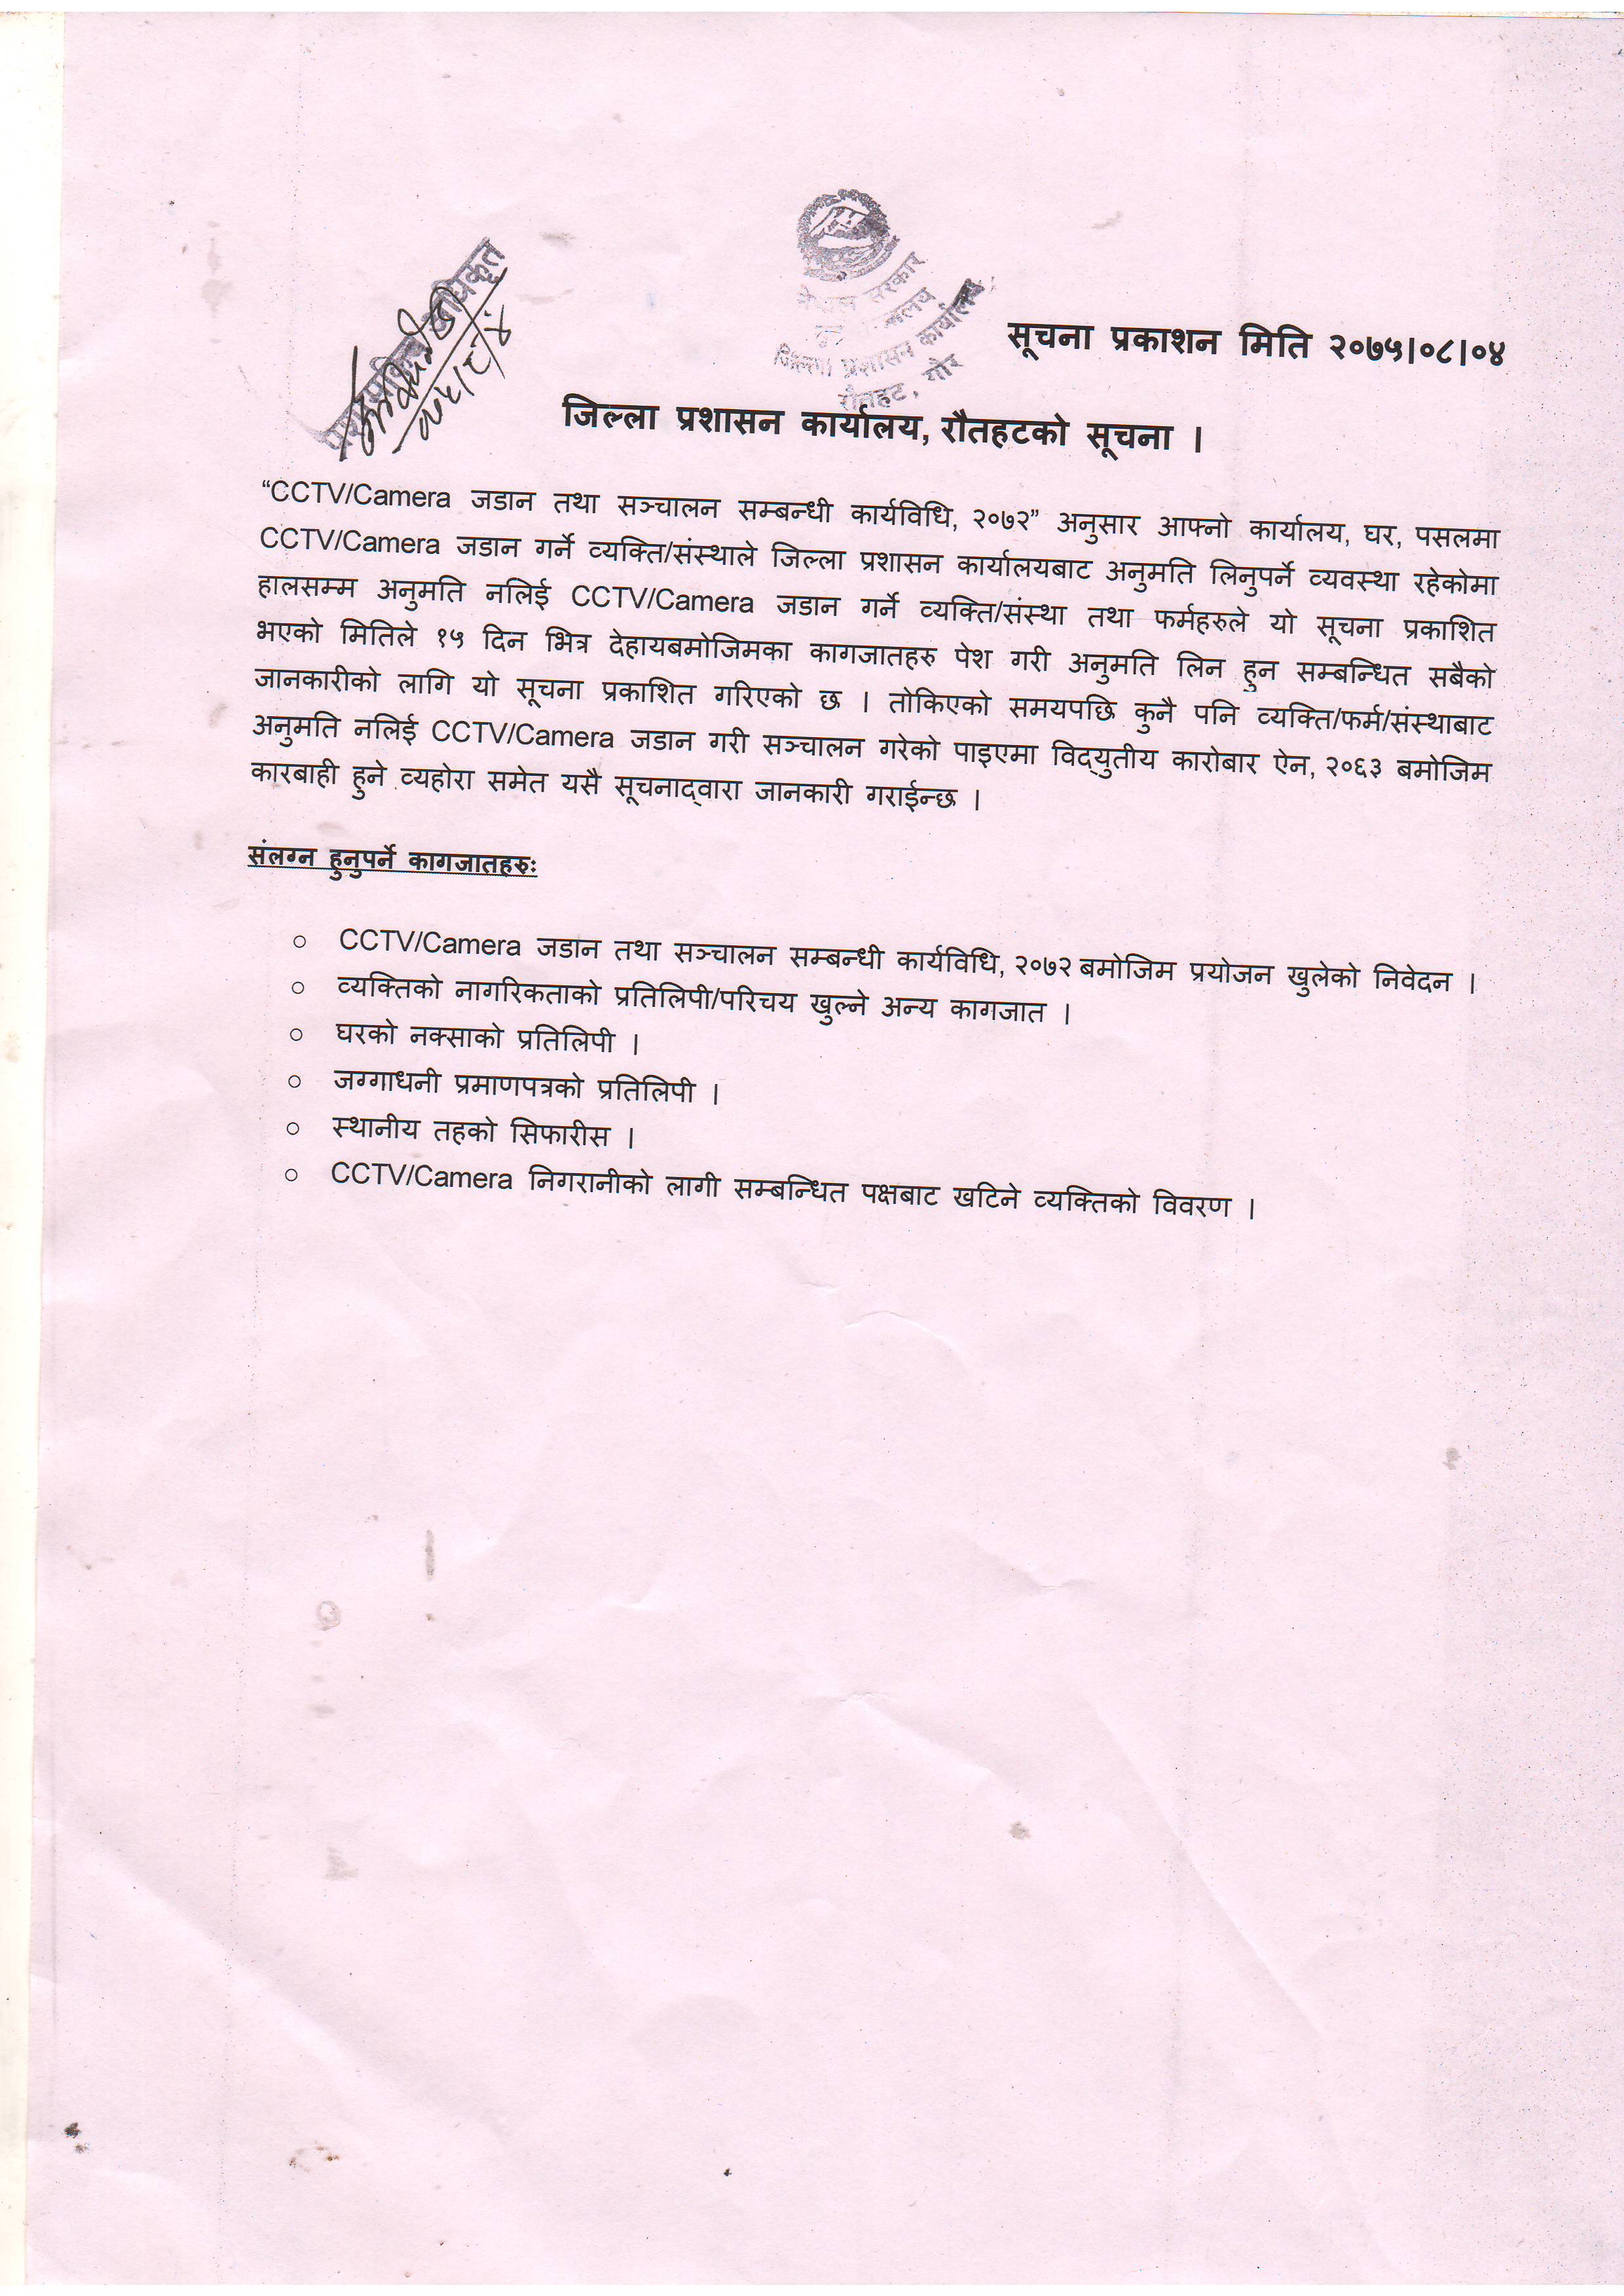 सरकार
जिल्ला प्रशासन कार्यालय
रौतहट, गौर
सूचना प्रकाशन मिति २०७५।०८।०४
जिल्ला प्रशासन कार्यालय, रौतहटको सूचना ।
“CCTV/Camera जडान तथा सञ्चालन सम्बन्धी कार्यविधि, २०७२” अनुसार आफ्नो कार्यालय, घर, पसलमा
CCTV/Camera जडान गर्ने व्यक्ति/संस्थाले जिल्ला प्रशासन कार्यालयबाट अनुमति लिनुपर्ने व्यवस्था रहेकोमा
हालसम्म अनुमति नलिई CCTV/Camera जडान गर्ने व्यक्ति/संस्था तथा फर्महरुले यो सूचना प्रकाशित
भएको मितिले १५ दिन भित्र देहायबमोजिमका कागजातहरु पेश गरी अनुमति लिन हुन सम्बन्धित सबैको
जानकारीको लागि यो सूचना प्रकाशित गरिएको छ । तोकिएको समयपछि कुनै पनि व्यक्ति/फर्म/संस्थाबाट
अनुमति नलिई CCTV/Camera जडान गरी सञ्चालन गरेको पाइएमा विद्युतीय कारोबार ऐन, २०६३ बमोजिम
कारबाही हुने व्यहोरा समेत यसै सूचनाद्वारा जानकारी गराईन्छ ।
संलग्न हुनुपर्ने कागजातहरुः
○ CCTV/Camera जडान तथा सञ्चालन सम्बन्धी कार्यविधि, २०७२ बमोजिम प्रयोजन खुलेको निवेदन ।
○ व्यक्तिको नागरिकताको प्रतिलिपी/परिचय खुल्ने अन्य कागजात ।
○ घरको नक्साको प्रतिलिपी ।
○ जग्गाधनी प्रमाणपत्रको प्रतिलिपी ।
○ स्थानीय तहको सिफारीस ।
○ CCTV/Camera निगरानीको लागी सम्बन्धित पक्षबाट खटिने व्यक्तिको विवरण ।